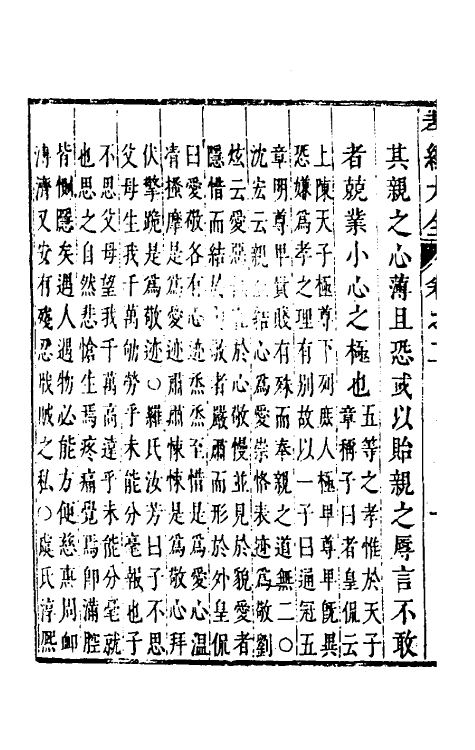 孝經大全 卷之二 十
其親之心薄且恐或以貽親之辱言不敢
者兢業小心之極也
五等之孝惟於天子
章稱子曰者皇侃云
上陳天子極尊下列庶人極卑尊卑旣異
恐嫌爲孝之理有別故以一子曰通冠五
章明尊卑貴賤有殊而奉親之道無二〇
沈宏云親至結心爲愛崇恪表迹爲敬劉
炫云愛惡俱在於心敬慢並見於貌愛者
隱惜而結於內敬者嚴肅而形於外皇侃
曰愛敬各有心迹烝烝至惜是爲愛心溫
凊搔摩是爲愛迹肅肅悚悚是爲敬心拜
伏擎跪是爲敬迹〇羅氏汝芳曰子不思
父母生我千萬劬勞乎未能分毫報也子
不思父母望我千萬高遠乎未能分毫就
也思之自然悲愴生焉疼痛覺焉卽滿腔
皆惻隱矣遇人遇物必能方便慈惠周卹
溥濟又安有殘忍戕賊之私〇虞氏淳熙